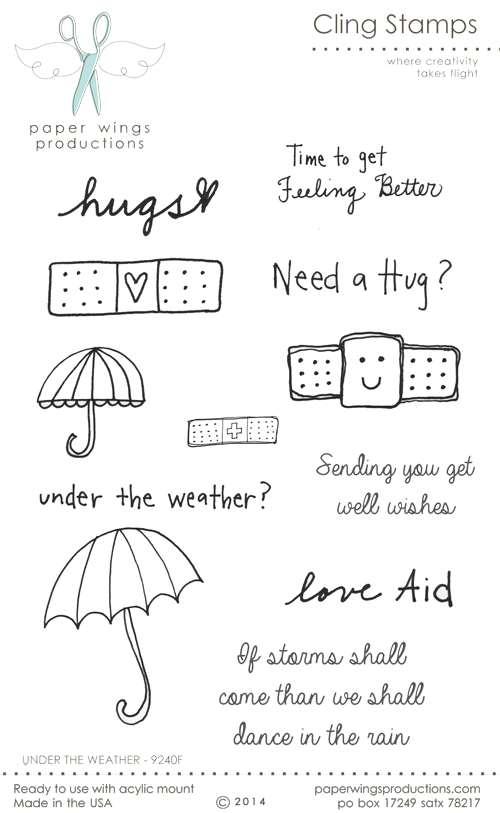 Cling Stamps
where creativity
takes flight
paper wings
productions
Time to get
Feeling Better
hugs
Need a Hug?
Sending you get
well wishes
under the weather?
love Aid
If storms shall
come than we shall
dance in the rain
UNDER THE WEATHER - 9240F
Ready to use with acylic mount
Made in the USA
© 2014
paperwingsproductions.com
po box 17249 satx 78217